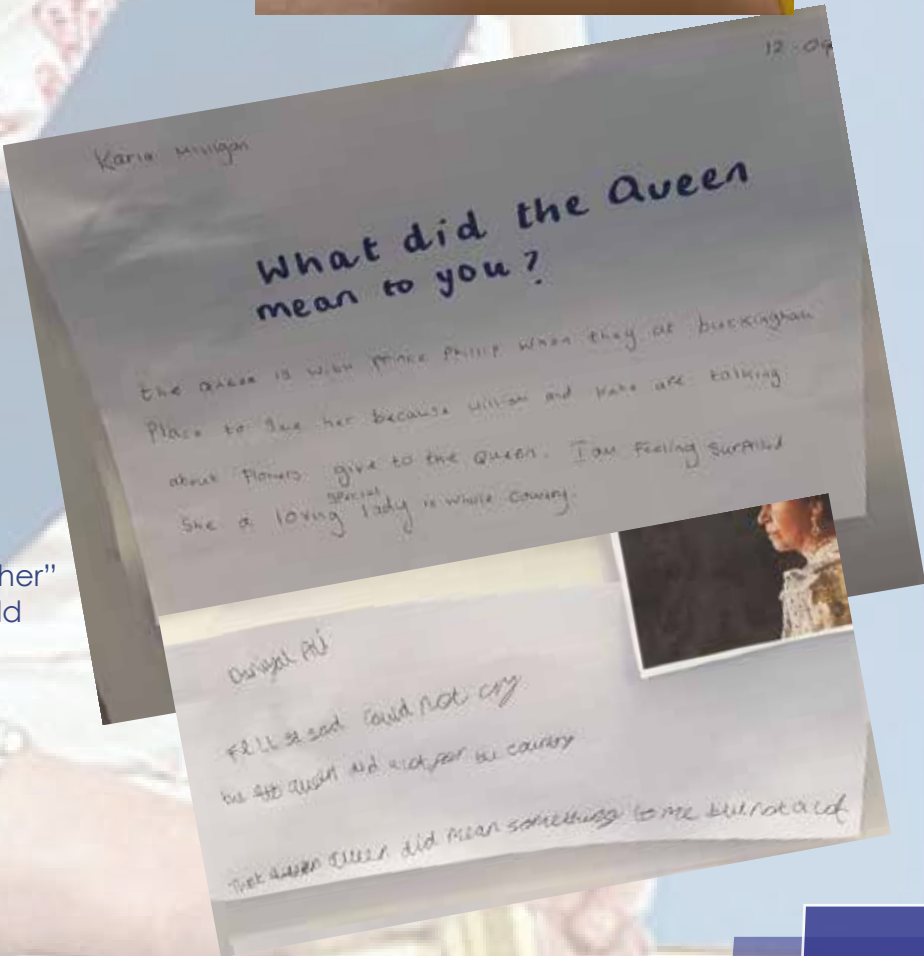 12-09
Karia Milligan
What did the Queen
mean to you?
the Queen is with prince Phillip when they at buckingham
Place to see her because william and kate are talking
about flowers give to the Queen. I am feeling surprised
special
She a loving lady is whole country.
her”
ld
felt sad could not cry
but queen did a lot for the country
queen did mean something to me but not a lot